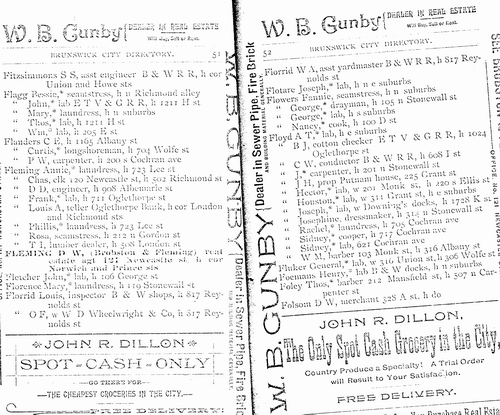 W. B. Gunby { DEALER IN REAL ESTATE
Will Buy, Sell or Rent.
BRUNSWICK CITY DIRECTORY. 51
Fitzsimmons S S, asst engineer B & W R R, h cor
Union and Howe sts
Flagg Bessie,* seamstress, h n Richmond alley
" John,* lab E T V & G R R, h 1211 H st
" Mary,* laundress, h n suburbs
" Thos,* lab, h 1211 H st
" Wm,* lab, h 205 E st
Flanders C E, h 1165 Albany st
" Curtis,* longshoreman, h 704 Wolfe st
" P W, carpenter, h 200 s Cochran ave
Fleming Annie,* laundress, h 723 Lee st
" Chas, clk 120 Newcastle st, h 501 Richmond st
" D D, engineer, h 908 Albemarle st
" Frank,* lab, h 711 Oglethorpe st
" Louis A, teller Oglethorpe Bank, h cor London
and Richmond sts
" Phillis,* laundress, h 723 Lee st
" Rosa, seamstress, h 212 n Gordon st
" T I, lumber dealer, h 508 London st
FLEMING D W, (Brobston & Fleming) real
estate agt 121 Newcastle st, h cor
Norwich and Prince sts
Fletcher John,* lab, h 106 George st
Florence Mary,* laundress, h 119 Stonewall st
Florrid Louis, inspector B & W shops, h 817 Rey-
nolds st
" O F, w W D Wheelwright & Co, h 817 Rey-
nolds st
JOHN R. DILLON
SPOT-CASH-ONLY
GO THERE FOR
THE CHEAPEST GROCERIES IN THE CITY.
FREE DELIVERY.
W. B. GUNBY { Dealer in Sewer Pipe, Fire Brick
W. B. Gunby { DEALER IN REAL ESTATE
Will Buy, Sell or Rent.
52 BRUNSWICK CITY DIRECTORY.
Florrid W A, asst yardmaster B & W R R, h 817 Rey-
nolds st
Flotare Joseph,* lab, h n e suburbs
Flowers Fannie, seamstress, h n suburbs
" George,* drayman, h 105 n Stonewall st
" George,* lab, h s suburbs
" Nancy,* cook, h 100 D st
Floyd A T,* lab, h e suburbs
" B J, cotton checker E T V & G R R, h 1024
Oglethorpe st
" C W, conductor B & W R R, h 608 I st
" J,* carpenter, h 201 n Stonewall st
" J H, prop Putnam house, 225 Grant st
" Hector,* lab, w 201 Monk st, h 220 s Ellis st
" Houston,* lab, w 511 Grant st, h e suburbs
" Joseph,* lab, w Downing's docks, h 1728 K st
" Josephine, dressmaker, h 314 n Stonewall st
" Rachel,* laundress, h 705 Cochran ave
" Sidney,* cooper, h 717 Cochran ave
" Sidney,* lab, 621 Cochran ave
" W M, barber 103 Monk st, h 316 Albany st
Fluker General,* lab, w 316 Union st, h 306 Wolfe st
Foemans Henry,* lab B & W docks, h n suburbs
Foley Thos,* barber 212 Mansfield st, h 307 n Car-
penter st
Folsom D W, merchant 328 A st, h do
JOHN R. DILLON,
The Only Spot Cash Grocery in the City,
Country Produce a Specialty! A Trial Order
will Result to Your Satisfaction.
FREE DELIVERY.
W. B. GUNBY { Dealer in Sewer Pipe, Fire Brick